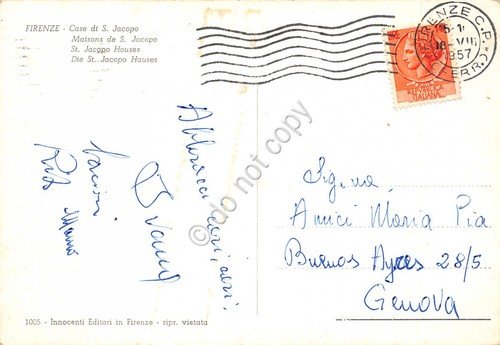 FIRENZE - Case di S. Jacopo
Maisons de S. Jacopo
St. Jacopo Houses
Die St. Jacopo Houses
FIRENZE C.P.
1957
(FERR.)
REPVBBLICA
ITALIANA
Abbracci cari, cari.
Bacioni
Rita
Sig.na
Amici Maria Pia
Buenos Ayres 28/5
Genova
do not copy
1005 - Innocenti Editori in Firenze - ripr. vietata